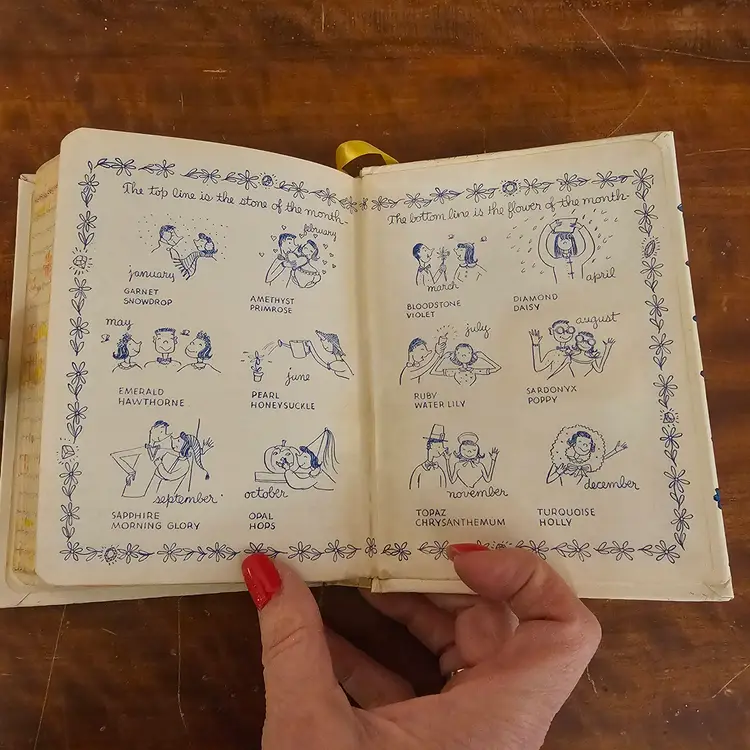 The top line is the stone of the month-
january
GARNET
SNOWDROP
february
AMETHYST
PRIMROSE
may
EMERALD
HAWTHORNE
june
PEARL
HONEYSUCKLE
september
SAPPHIRE
MORNING GLORY
october
OPAL
HOPS
The bottom line is the flower of the month-
march
BLOODSTONE
VIOLET
april
DIAMOND
DAISY
july
RUBY
WATER LILY
august
SARDONYX
POPPY
november
TOPAZ
CHRYSANTHEMUM
december
TURQUOISE
HOLLY